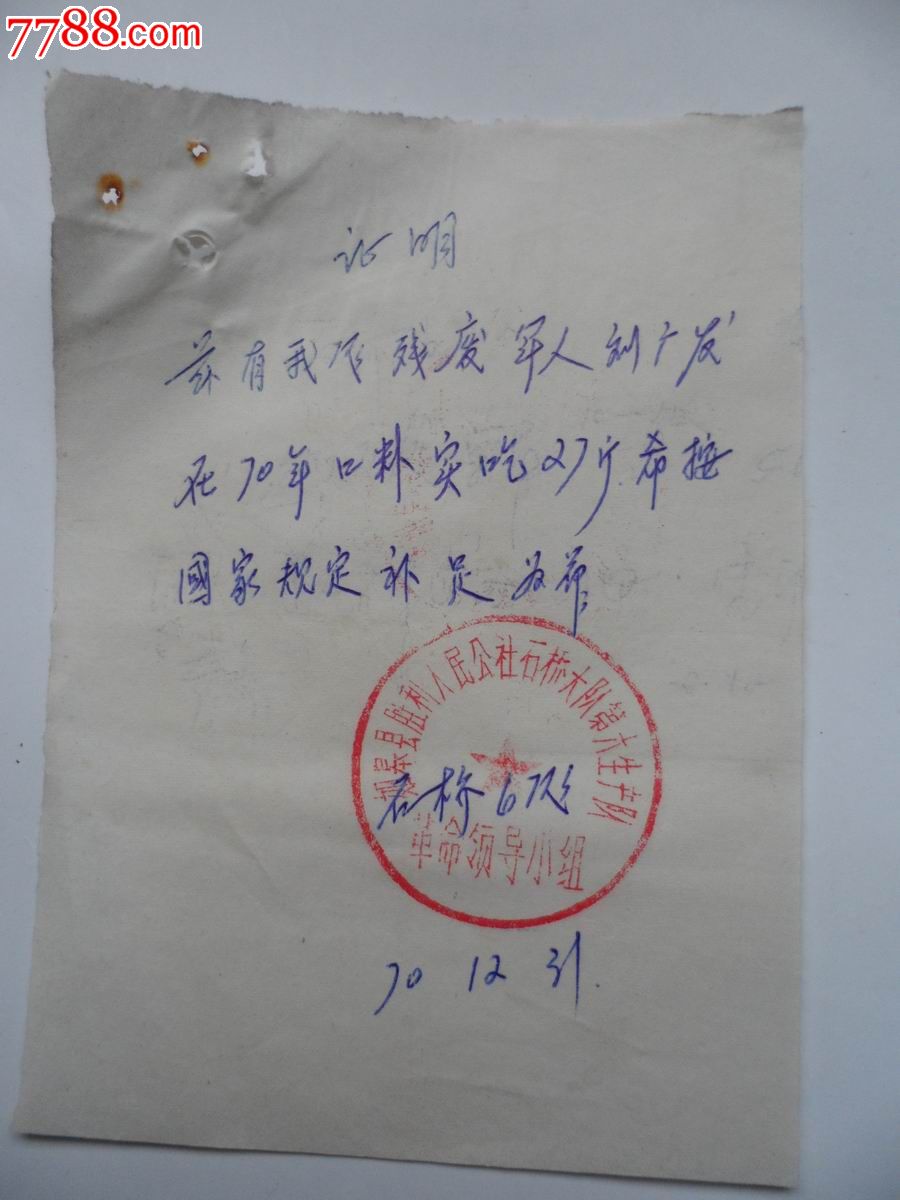 7788.com
证明
兹有我队残废军人刘广发
在70年口料实吃27斤.希按
國家规定补足为荷
县胜利人民公社石桥大队第六生产队
石桥6队
革命领导小组
70 12 31.